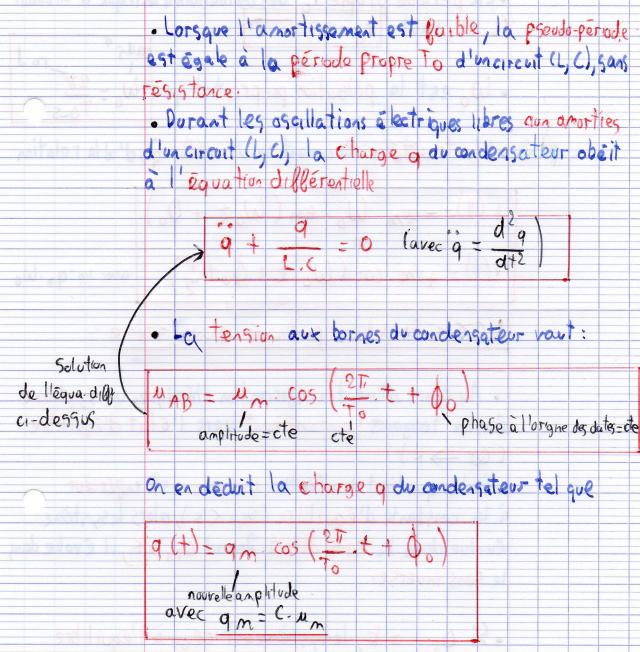 • Lorsque l'amortissement est faible, la pseudo-période
est égale à la période propre T0 d'un circuit (L,C), sans
résistance.
• Durant les oscillations électriques libres non amorties
d'un circuit (L,C), la charge q du condensateur obéit
à l'équation différentielle
q̈ + q/L.C = 0 (avec q̈ = d²q/dt²)
• La tension aux bornes du condensateur vaut :
Solution
de l'équa. diff
ci-dessus
u_AB = u_m . cos (2π/T0 . t + ϕ0)
amplitude = cte
cte
phase à l'origine des dates = cte
On en déduit la charge q du condensateur tel que
q(t) = q_m cos (2π/T0 . t + ϕ0)
nouvelle amplitude
avec q_m = C . u_m